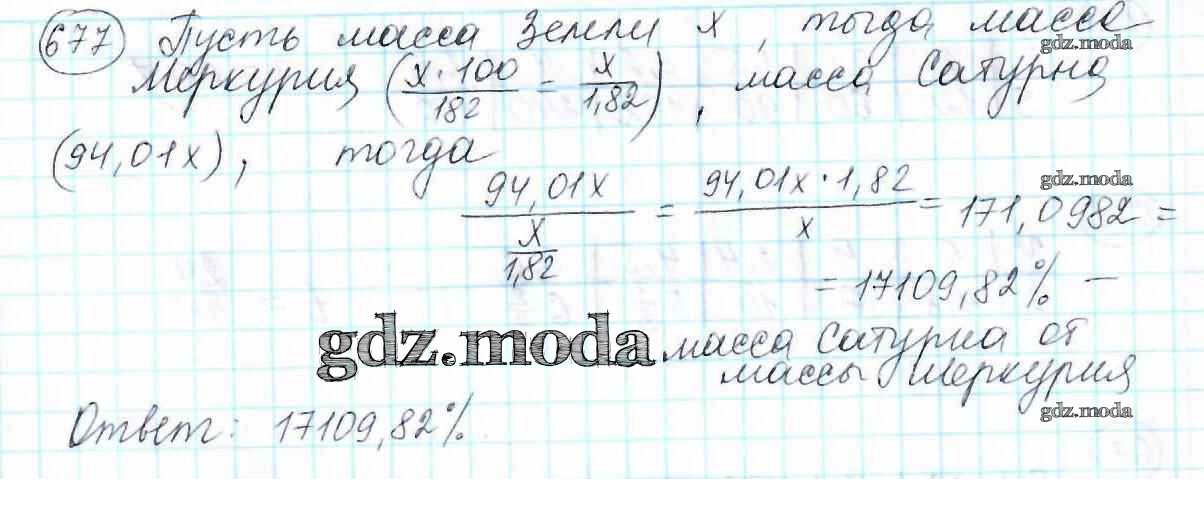 677 Пусть масса Земли x, тогда масса
gdz.moda
Меркурия (x·100/182 = x/1,82), масса Сатурна
(94,01x), тогда
gdz.moda
94,01x / (x/1,82) = 94,01x·1,82 / x = 171,0982 =
= 17109,82% —
gdz.moda масса Сатурна от
массы Меркурия
gdz.moda
Ответ: 17109,82%.